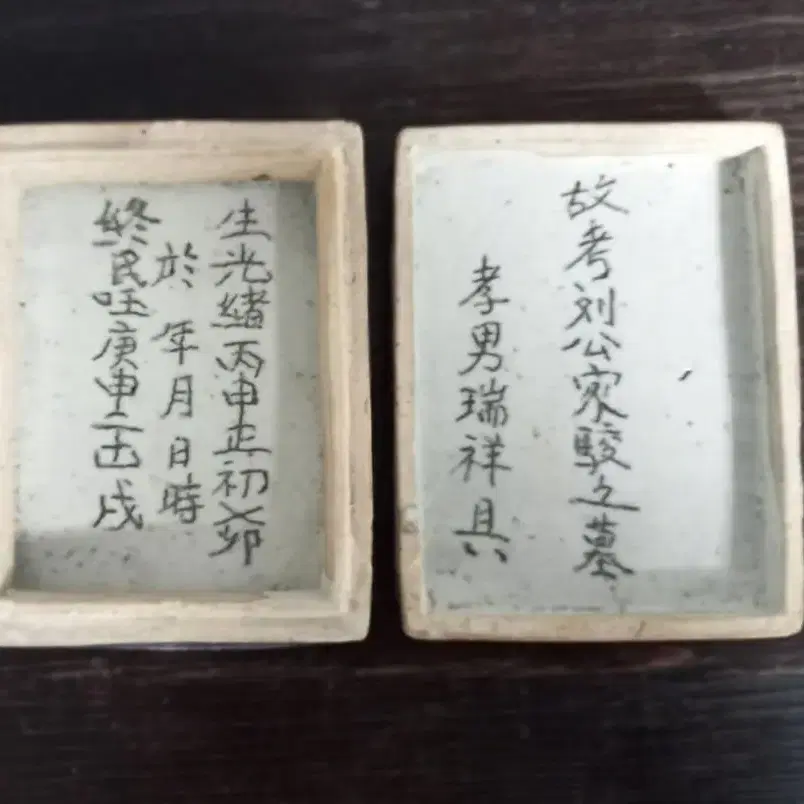 故考刘公家駿之墓
孝男瑞祥具
生光緒丙申正初卯
於年月日時
終民庚申戌